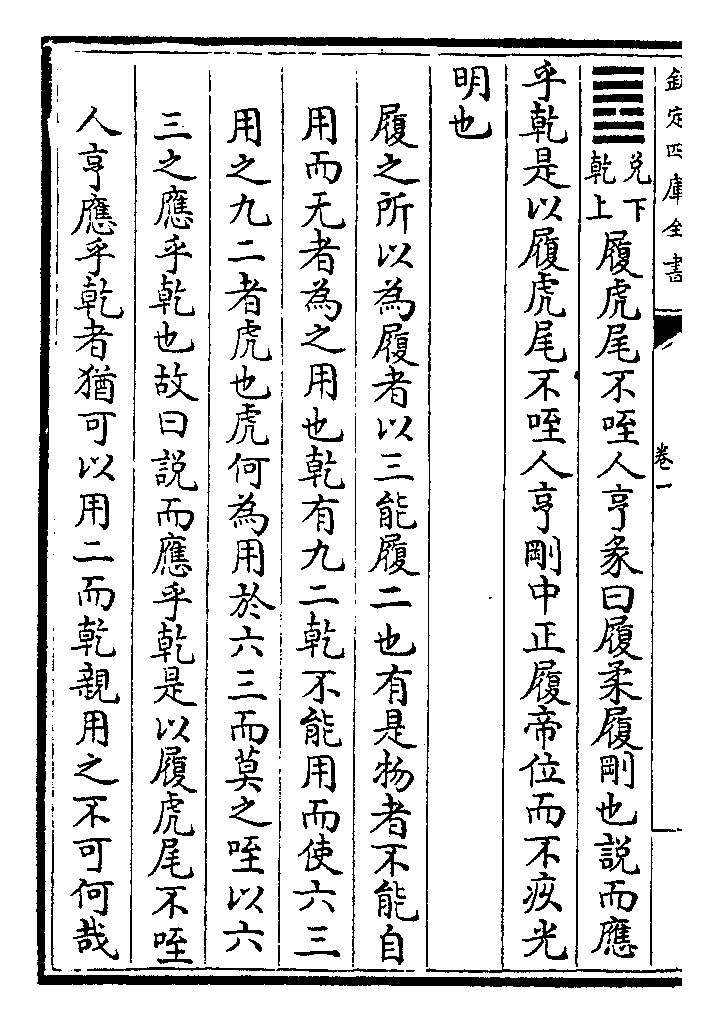 欽定四庫全書
卷一
䷉兌下乾上履虎尾不咥人亨彖曰履柔履剛也說而應
乎乾是以履虎尾不咥人亨剛中正履帝位而不疚光
明也
履之所以為履者以三能履二也有是物者不能自
用而无者為之用也乾有九二乾不能用而使六三
用之九二者虎也虎何為用於六三而莫之咥以六
三之應乎乾也故曰說而應乎乾是以履虎尾不咥
人亨應乎乾者猶可以用二而乾親用之不可何哉